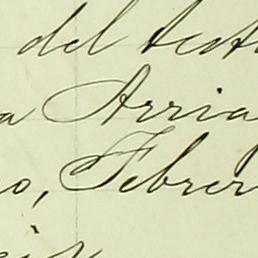 del test
a Arria
o, Febrer